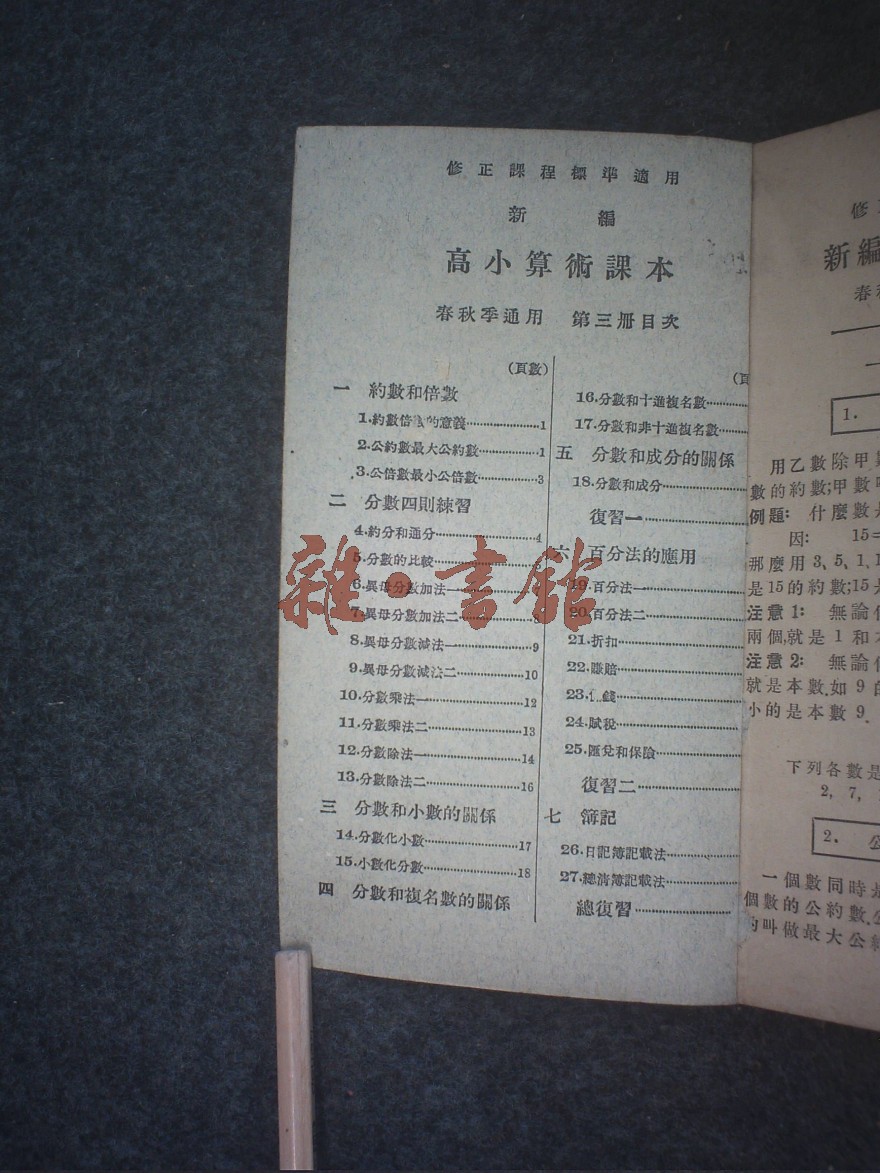 修正課程標準適用
新編
高小算術課本
春秋季通用 第三册目次
(頁數)
一 約數和倍數
1.約數倍 的意義 1
2.公約數最大公約數 1
3.公倍數最小公倍數 3
二 分數四則練習
4.約分和通分 4
5.分數的比較
6.異母分數加法一
7.異母分數加法二 8
8.異母分數減法一 9
9.異母分數減法二 10
10.分數乘法一 12
11.分數乘法二 13
12.分數除法一 14
13.分數除法二 16
三 分數和小數的關係
14.分數化小數 17
15.小數化分數 18
四 分數和複名數的關係
(頁
16.分數和十進複名數
17.分數和非十進複名數
五 分數和成分的關係
18.分數和成分
復習一
六 百分法的應用
19.百分法一
20.百分法二
21.折扣
22.賺賠
23. 錢
24.賦稅
25.匯兌和保險
復習二
七 簿記
26.日記簿記載法
27.總清簿記載法
總復習
雜·書館
修
新編
春
一
1.
用乙數除甲
數的約數;甲數
例題: 什麼數
因: 15=
那麼用3,5,1,1
是15的約數;15
注意1: 無論
兩個,就是1和
注意2: 無論
就是本數.如9的
小的是本數9.
下列各數是
2, 7,
2. 公
一個數同時是
個數的公約數.
的叫做最大公約